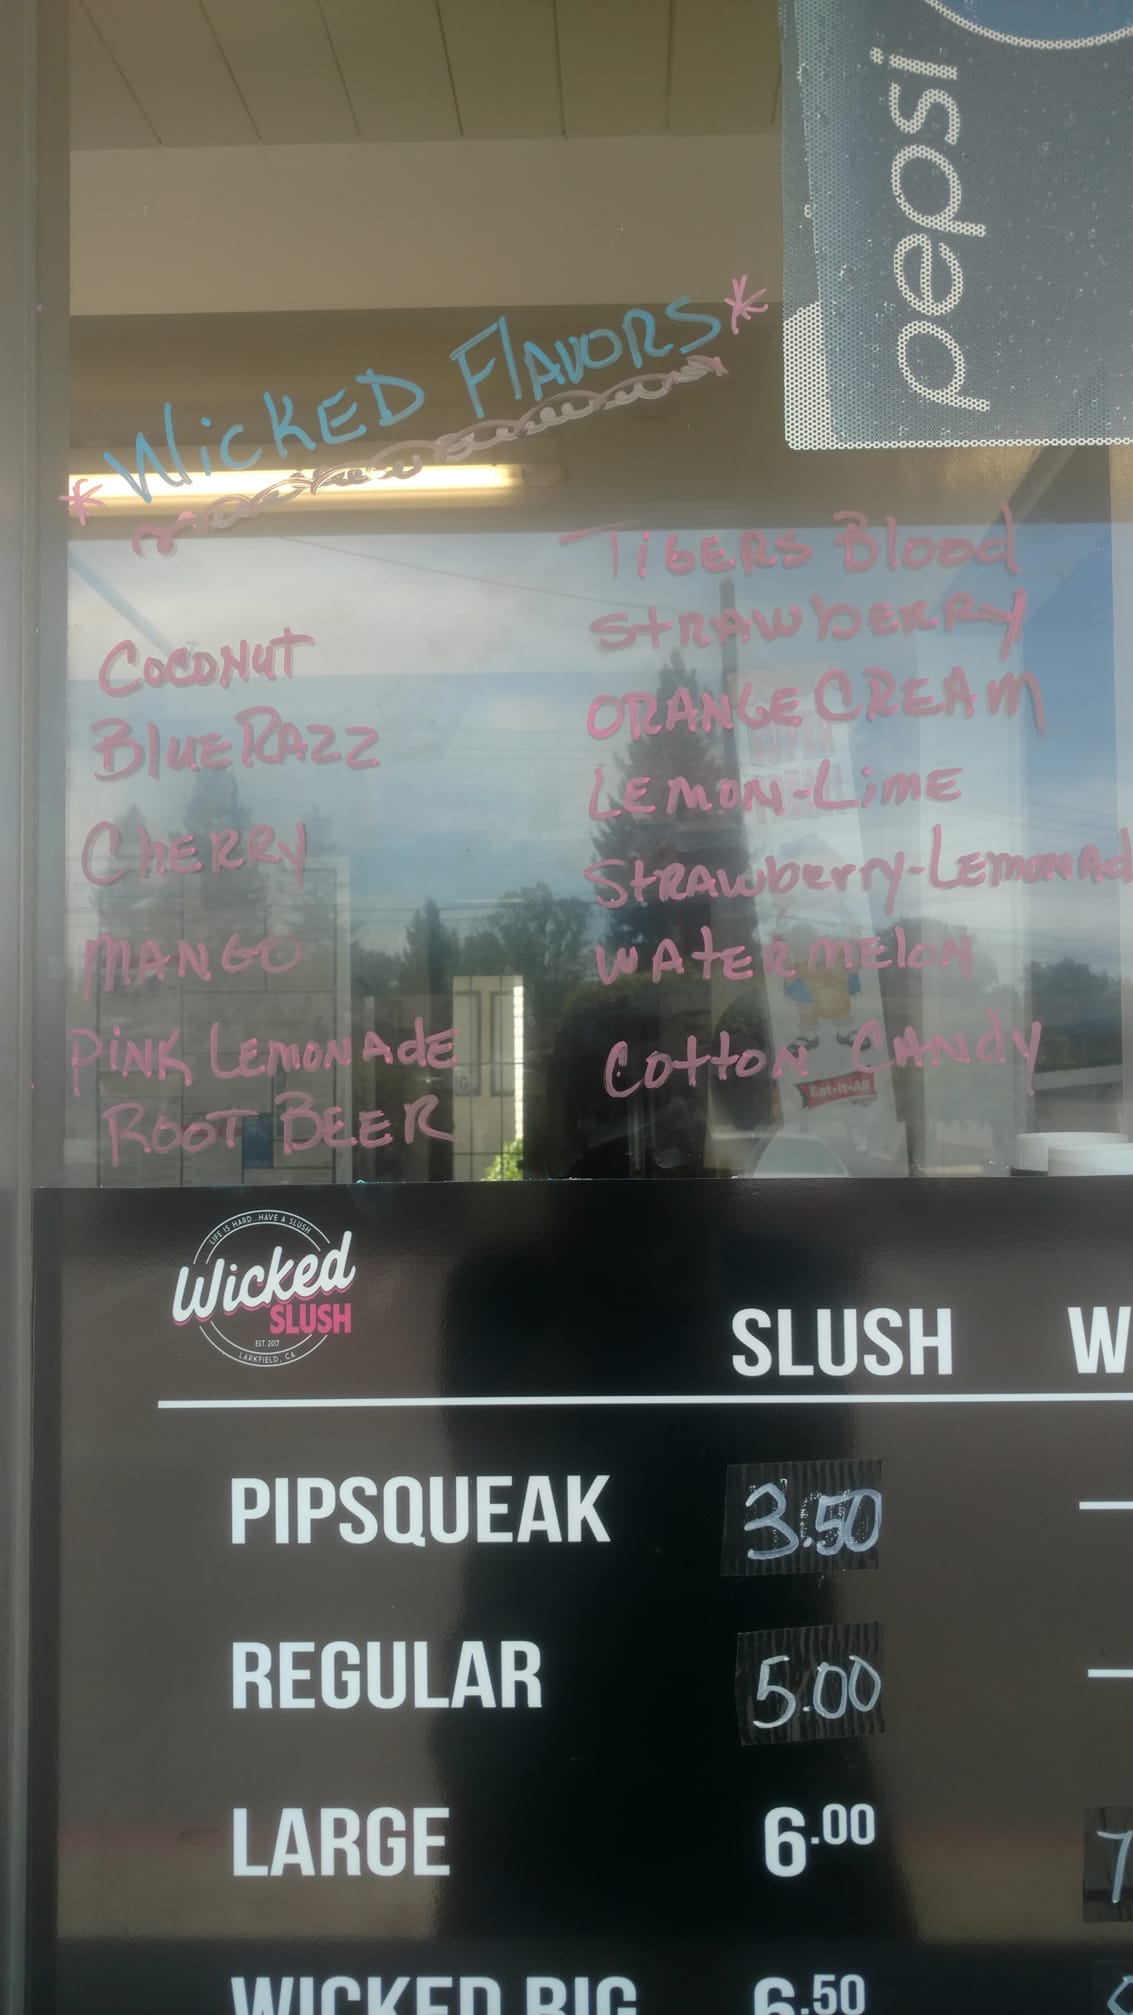 pepsi
* WICKED FLAVORS *
COCONUT
BLUE RAZZ
CHERRY
MANGO
PINK LEMONADE
ROOT BEER
TIGERS Blood
STRAWBERRY
ORANGE CREAM
LEMON-LIME
STRAWberry-LEMONAd
WATERMELON
COTTON CANDY
SUPER
Eat-It-All
LIFE IS HARD...HAVE A SLUSH
Wicked
SLUSH
EST. 2017
LARKFIELD, CA
SLUSH W
PIPSQUEAK 3.50 —
REGULAR 5.00 —
LARGE 6.00 7
WICKED BIG 6.50